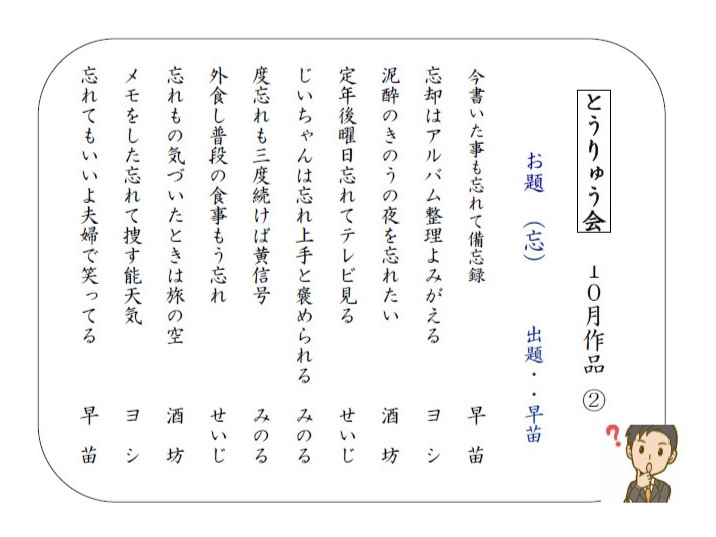 とうりゅう会　10月作品　②
お題　（忘）　出題・・早苗
今書いた事も忘れて備忘録　早苗
忘却はアルバム整理よみがえる　ヨシ
泥酔のきのうの夜を忘れたい　酒坊
定年後曜日忘れてテレビ見る　せいじ
じいちゃんは忘れ上手と褒められる　みのる
度忘れも三度続けば黄信号　みのる
外食し普段の食事もう忘れ　せいじ
忘れもの気づいたときは旅の空　酒坊
メモをした忘れて捜す能天気　ヨシ
忘れてもいいよ夫婦で笑ってる　早苗
?